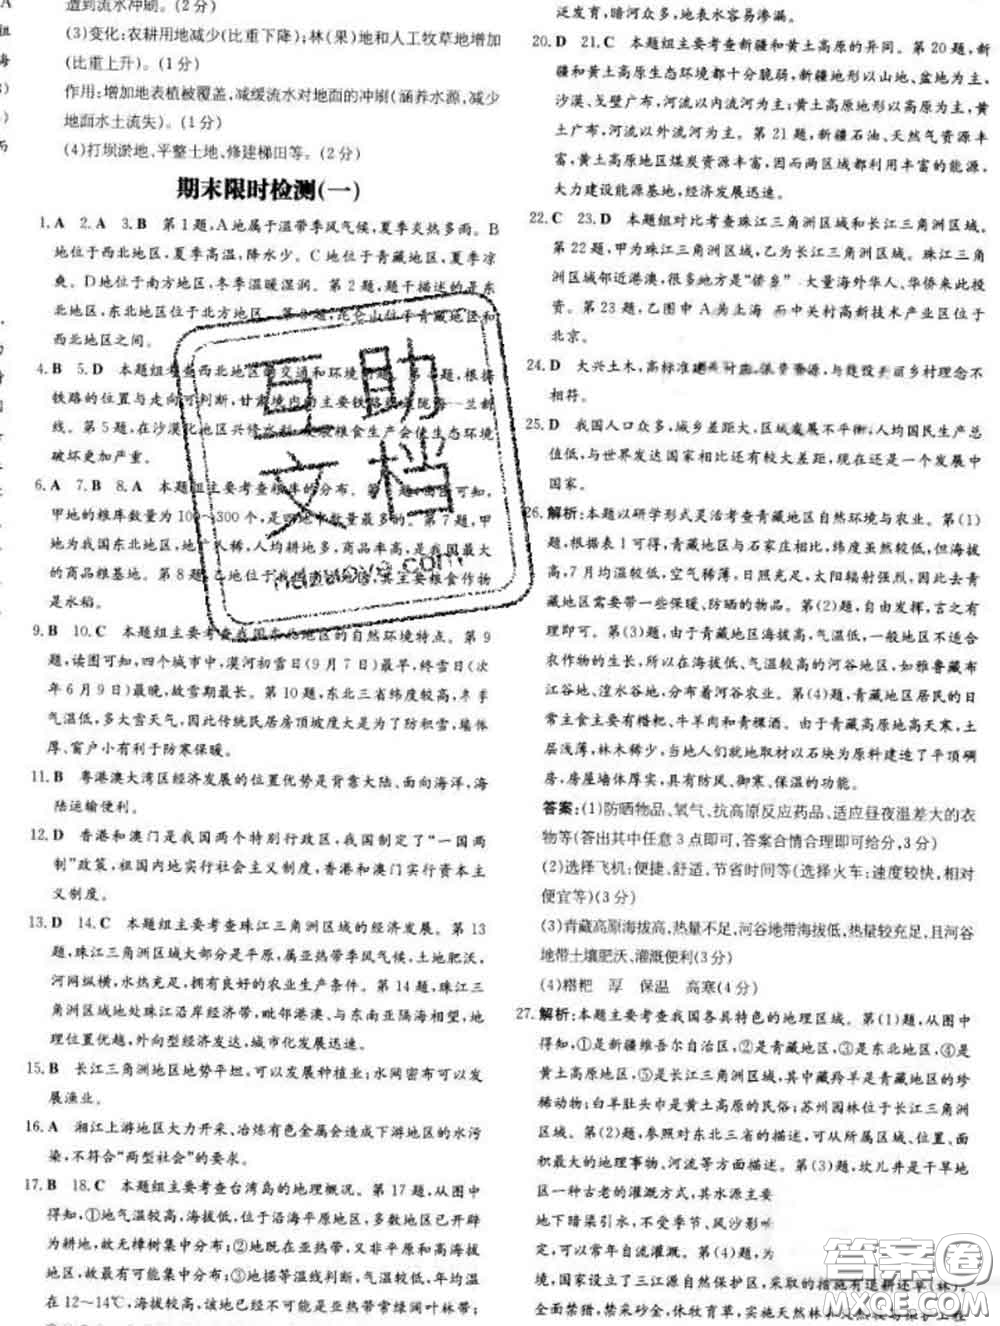 遭到流水冲刷。(2分)
(3)变化:农耕用地减少(比重下降);林(果)地和人工牧草地增加
(比重上升)。(1分)
作用:增加地表植被覆盖,减缓流水对地面的冲刷(涵养水源,减少
地面水土流失)。(1分)
(4)打坝淤地、平整土地、修建梯田等。(2分)
期末限时检测(一)
1. A 2. A 3. B 第1题,A地属于温带季风气候,夏季炎热多雨。B
地位于西北地区,夏季高温,降水少。C地位于青藏地区,夏季
凉爽。D地位于南方地区,冬季温暖湿润。第2题,题干描述的是东
北地区,东北地区位于北方地区。第3题,昆仑山位于青藏地区和
西北地区之间。
4. B 5. D 本题组考查西北地区的交通和环境 根据
铁路的位置与走向可判断,甘肃境内的主要铁路 陇海—兰新
线。第5题,在沙漠化地区兴修水利,发展粮食生产会使生态环境
破坏更加严重。
6. A 7. B 8. A 本题组主要考查粮库的分布。第 题,由图可知,
甲地的粮库数量为100~300个,是四地中数量最多的。第7题,甲
地为我国东北地区,地广人稀,人均耕地多,商品率高,是我国最大
的商品粮基地。第8题,乙地位于我 地区,其主要粮食作物
是水稻。
9. B 10. C 本题组主要考查我国东北地区的自然环境特点。第9
题,读图可知,四个城市中,漠河初雪日(9月7日)最早,终雪日(次
年6月9日)最晚,故雪期最长。第10题,东北三省纬度较高,冬季
气温低,多大雪天气,因此传统民居房顶坡度大是为了防积雪,墙体
厚、窗户小有利于防寒保暖。
11. B 粤港澳大湾区经济发展的位置优势是背靠大陆、面向海洋,海
陆运输便利。
12. D 香港和澳门是我国两个特别行政区,我国制定了“一国两
制”政策,祖国内地实行社会主义制度,香港和澳门实行资本主
义制度。
13. D 14. C 本题组主要考查珠江三角洲区域的经济发展。第13
题,珠江三角洲区域大部分是平原,属亚热带季风气候,土地肥沃,
河网纵横,水热充足,拥有良好的农业生产条件。第14题,珠江三
角洲区域地处珠江沿岸经济带,毗邻港澳、与东南亚隔海相望,地
理位置优越,外向型经济发达,城市化发展迅速。
15. D 长江三角洲地区地势平坦,可以发展种植业;水网密布可以发
展渔业。
16. A 湘江上游地区大力开采、冶炼有色金属会造成下游地区的水污
染,不符合“两型社会”的要求。
17. B 18. C 本题组主要考查台湾岛的地理概况。第17题,从图中
得知,①地气温较高,海拔低,位于沿海平原地区,多数地区已开垦
为耕地,故无樟树集中分布;②地既在亚热带、又非平原和高海拔
地区,故樟树集中分布;③地虽然在亚热带,但气温较低,年均温
在12~14℃,海拔较高,该地已经不是亚热带常绿阔叶林带;
泛发育,暗河众多,地表水容易渗漏。
20. D 21. C 本题组主要考查新疆和黄土高原的异同。第20题,新
疆和黄土高原生态环境都十分脆弱,新疆地形以山地、盆地为主,
沙漠、戈壁广布,河流以内流河为主,黄土高原地形以高原为主,
黄土广布,河流以外流河为主。第21题,新疆石油、天然气资源丰
富,黄土高原地区煤炭资源丰富,因而两区域都利用丰富的能源,
大力建设能源基地,经济发展迅速。
22. C 23. D 本题组对比考查珠江三角洲区域和长江三角洲区域。
第22题,甲为珠江三角洲区域,乙为长江三角洲区域。珠江三角
洲区域邻近港澳,很多地方是“侨乡” 大量海外华人、华侨来此投
资。第23题,乙图中A为上海 而中关村高新技术产业区位于
北京。
24. D 大兴土木,高标准建 源,与建设美丽乡村理念不
相符。
25. D 我国人口众多,城乡差距大,区域发展不平衡,人均国民生产总
值低,与世界发达国家相比还有较大差距,现在还是一个发展中
国家。
26. 解析:本题以研学形式灵活考查青藏地区自然环境与农业。第(1)
题,根据表1可得,青藏地区与石家庄相比,纬度虽然较低,但海拔
高,7月均温较低,空气稀薄,日照充足,太阳辐射强烈。因此去青
藏地区需要带一些保暖、防晒的物品。第(2)题,自由发挥,言之有
理即可。第(3)题,由于青藏地区海拔高,气温低,一般地区不适合
农作物的生长,所以在海拔低、气温较高的河谷地区,如雅鲁藏布
江谷地、湟水谷地,分布着河谷农业。第(4)题,青藏地区居民的日
常主食主要有糌粑、牛羊肉和青稞酒。由于青藏高原地高天寒,土
层浅薄,林木稀少,当地人们就地取材以石块为原料建造了平顶碉
房,房屋墙体厚实,具有防风、御寒、保温的功能。
答案:(1)防晒物品、氧气、抗高原反应药品、适应昼夜温差大的衣
物等(答出其中任意3点即可,答案合情合理即可给分,3分)
(2)选择飞机:便捷、舒适,节省时间等(选择火车:速度较快,相对
便宜等)(3分)
(3)青藏高原海拔高,热量不足,河谷地带海拔低,热量较充足,且河谷
地带土壤肥沃、灌溉便利(3分)
(4)糌粑 厚 保温 高寒(4分)
27. 解析:本题主要考查我国各具特色的地理区域。第(1)题,从图中
得知,①是新疆维吾尔自治区,②是青藏地区,③是东北地区,④是
黄土高原地区,⑤是长江三角洲区域,其中藏羚羊是青藏地区的珍
稀动物;白羊肚头巾是黄土高原的民俗;苏州园林位于长江三角洲
区域。第(2)题,参照对东北三省的描述,可从区域、位置、面
积最大的地理事物、河流等方面描述。第(3)题,坎儿井是干旱地
区一种古老的灌溉方式,其水源主要
地下暗渠引水,不受季节、风沙影响
定,可以常年自流灌溉。第(4)题,
境,国家设立了三江源自然保护区,采取的措施有退耕还草(林)、
全面禁猎,禁采砂金,休牧育草,实施天然林
互助
文档
答案圈
MXQE.COM